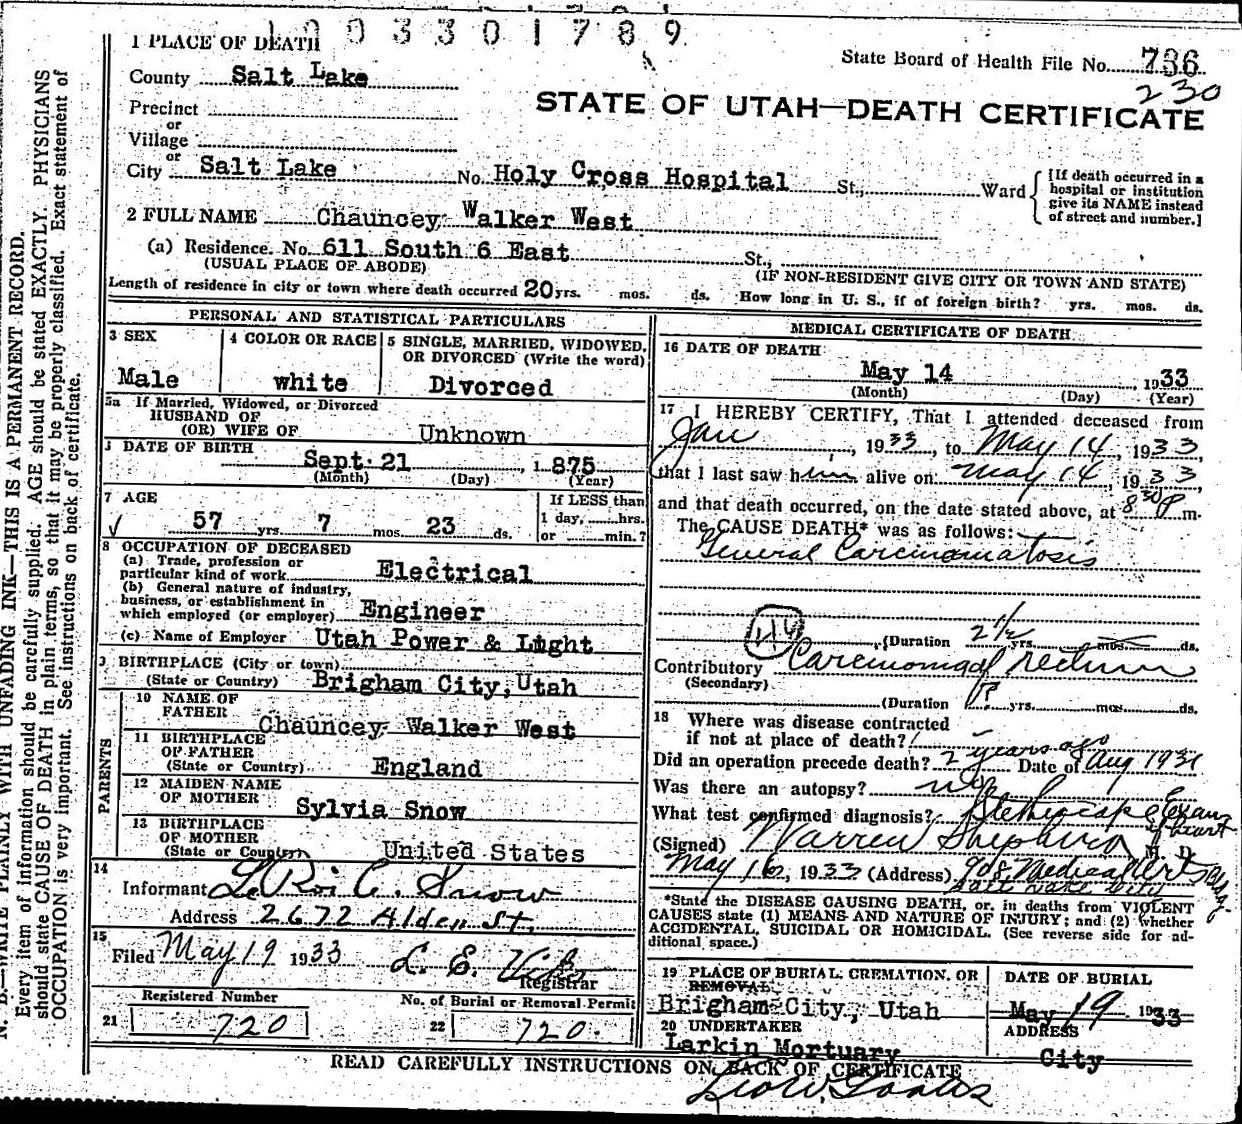 1003301789
1 PLACE OF DEATH
State Board of Health File No. 736
County Salt Lake
230
STATE OF UTAH—DEATH CERTIFICATE
Precinct
or
Village
or
City Salt Lake No. Holy Cross Hospital St., Ward
[If death occurred in a hospital or institution give its NAME instead of street and number.]
2 FULL NAME Chauncey Walker West
(a) Residence. No. 611 South 6 East St.,
(USUAL PLACE OF ABODE) (IF NON-RESIDENT GIVE CITY OR TOWN AND STATE)
Length of residence in city or town where death occurred 20 yrs. mos. ds. How long in U. S., if of foreign birth? yrs. mos. ds.
PERSONAL AND STATISTICAL PARTICULARS
3 SEX
Male
4 COLOR OR RACE
white
5 SINGLE, MARRIED, WIDOWED,
OR DIVORCED (Write the word)
Divorced
5a If Married, Widowed, or Divorced
HUSBAND OF
(OR) WIFE OF Unknown
DATE OF BIRTH
Sept. 21, 1875
(Month) (Day) (Year)
7 AGE
57 yrs. 7 mos. 23 ds.
If LESS than
1 day, hrs.
or min.?
8 OCCUPATION OF DECEASED
(a) Trade, profession or
particular kind of work Electrical
(b) General nature of industry,
business, or establishment in
which employed (or employer) Engineer
(c) Name of Employer Utah Power & Light
9 BIRTHPLACE (City or town)
(State or Country) Brigham City, Utah
PARENTS
10 NAME OF
FATHER Chauncey Walker West
11 BIRTHPLACE
OF FATHER
(State or Country) England
12 MAIDEN NAME
OF MOTHER Sylvia Snow
13 BIRTHPLACE
OF MOTHER
(State or Country) United States
14
Informant LeRoi C. Snow
Address 2672 Alden St.
15
Filed May 19 1933 L. E.
Registrar
Registered Number
21 720
No. of Burial or Removal Permit
22 720.
MEDICAL CERTIFICATE OF DEATH
16 DATE OF DEATH
May 14, 1933
(Month) (Day) (Year)
17 I HEREBY CERTIFY, That I attended deceased from
Jan, 1933, to May 14, 1933,
that I last saw him alive on May 14, 1933
and that death occurred, on the date stated above, at 8 30 P m.
The CAUSE DEATH* was as follows:
General Carcinomatosis
(Duration 2 1/2 yrs. mos. ds.
Contributory Carcinoma of rectum
(Secondary)
(Duration ? yrs. mos. ds.
18 Where was disease contracted
if not at place of death?
Did an operation precede death? 2 years ago Date of Aug 1931
Was there an autopsy? no
What test confirmed diagnosis? Exam
(Signed) Warren Shepherd M. D.
May 16, 1933 (Address) 908 Medical Arts Bldg.
Salt Lake City
*State the DISEASE CAUSING DEATH, or, in deaths from VIOLENT
CAUSES state (1) MEANS AND NATURE OF INJURY; and (2) whether
ACCIDENTAL, SUICIDAL OR HOMICIDAL. (See reverse side for ad-
ditional space.)
19 PLACE OF BURIAL, CREMATION, OR
REMOVAL
Brigham City, Utah
DATE OF BURIAL
May 19, 1933
20 UNDERTAKER
Larkin Mortuary
ADDRESS
City
READ CAREFULLY INSTRUCTIONS ON BACK OF CERTIFICATE
N. B.—WRITE PLAINLY WITH UNFADING INK—THIS IS A PERMANENT RECORD.
Every item of information should be carefully supplied. AGE should be stated EXACTLY. PHYSICIANS
should state CAUSE OF DEATH in plain terms, so that it may be properly classified. Exact statement of
OCCUPATION is very important. See instructions on back of certificate.